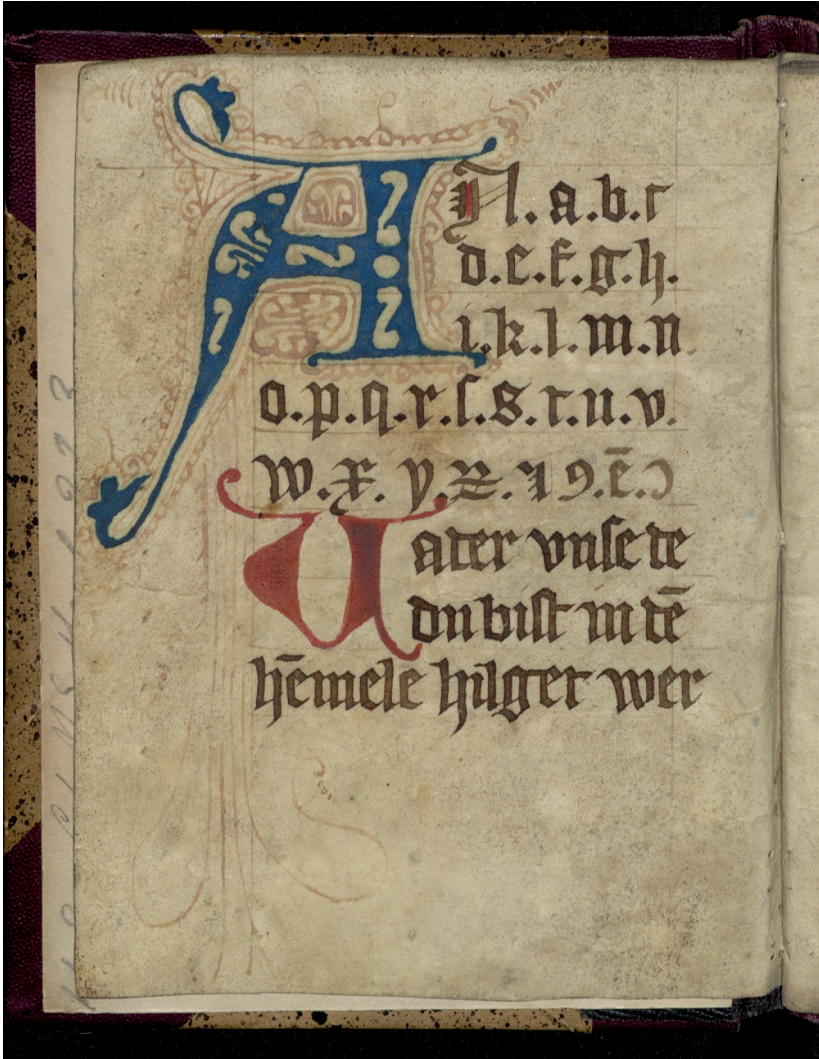 A
Il. a.b.c
d.e.f.g.h.
i.k.l.m.n
o.p.q.r.ſ.s.t.u.v.
w.x.y.z.⁊ 9.ē.ↄ
Uater vnſe de
du biſt in dē
hēmele hilget wer